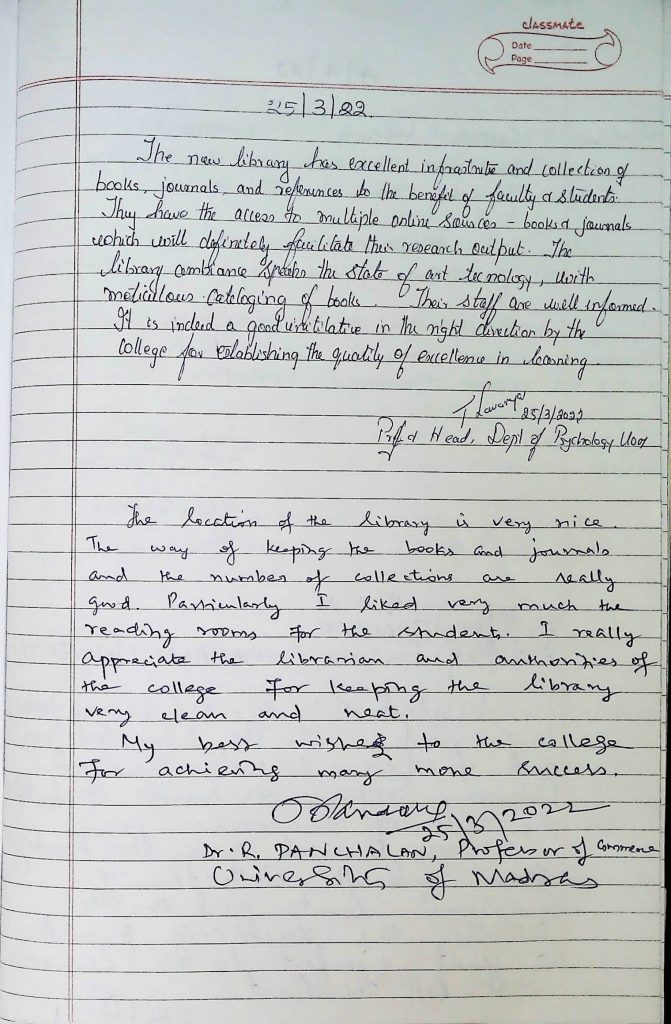 classmate
Date
Page
25/3/22
The new library has excellent infrastrutre and collection of
books, journals, and references to the benefit of faculty & students.
They have the access to multiple online sources - books & journals
which will definetely facilitate their research output. The
library ambiance speaks the state of art tecnology, with
meticulous cateloging of books. Their staff are well informed.
It is indeed a good in the right direction by the
College for establishing the quality of excellence in learning.
25/3/2022
Prof & Head, Dept of Psychology UoM
The location of the library is very nice.
The way of keeping the books and journals
and the number of collections are really
good. Particularly I liked very much the
reading rooms for the students. I really
appreciate the librarian and authorities of
the college for keeping the library
very clean and neat.
My best wishes to the college
for achieving many more success.
25/3/2022
Dr. R. PANCHALAN, Professor of Commerce
University of Madras